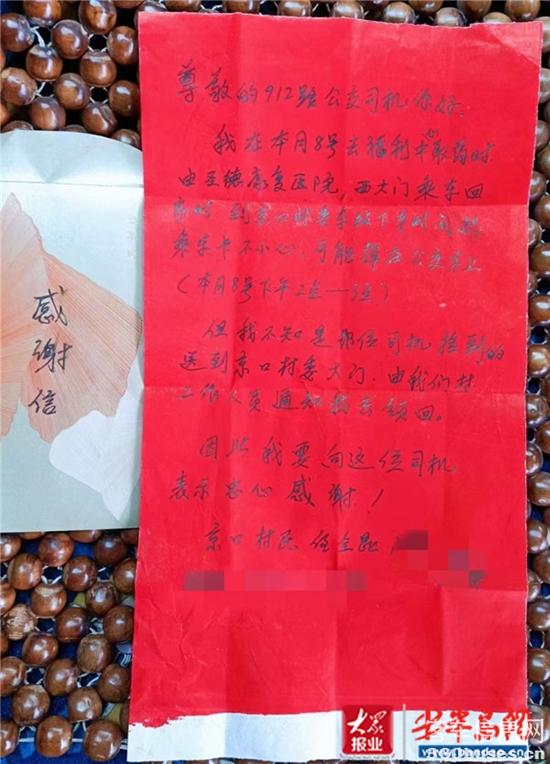 感谢信
尊敬的912路公交司机你好.
我在本月8号去福利中心取药时
由至德康复医院,西大门乘车回
到京口村
乘车卡不小心,可能掉在公交车上
(本月8号下午2点—3点)
但我不知是那位司机捡到的
送到京口村委大门.由我们村
工作人员通知我去领回。
因此我要向这位司机
表示忠心感谢!
京口村民任全昆
大众
报业
半岛网